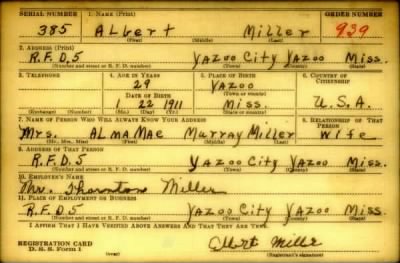 SERIAL NUMBER 1. NAME (Print) ORDER NUMBER
385 Albert Miller 929
(First) (Middle) (Last)
2. ADDRESS (Print)
R.F.D.5 Yazoo City Yazoo Miss.
(Number and street or R. F. D. number) (Town) (County) (State)
3. TELEPHONE 4. AGE IN YEARS 5. PLACE OF BIRTH 6. COUNTRY OF CITIZENSHIP
29 Yazoo
DATE OF BIRTH (Town or county)
1 22 1911 Miss. U.S.A.
(Exchange) (Number) (Mo.) (Day) (Yr.) (State or country)
7. NAME OF PERSON WHO WILL ALWAYS KNOW YOUR ADDRESS 8. RELATIONSHIP OF THAT PERSON
Mrs. Alma Mae Murray Miller Wife
(Mr., Mrs., Miss) (First) (Middle) (Last)
9. ADDRESS OF THAT PERSON
R.F.D.5 Yazoo City Yazoo Miss.
(Number and street or R. F. D. number) (Town) (County) (State)
10. EMPLOYER'S NAME
Mr. Thornton Miller
11. PLACE OF EMPLOYMENT OR BUSINESS
R.F.D.5 Yazoo City Yazoo Miss.
(Number and street or R. F. D. number) (Town) (County) (State)
I AFFIRM THAT I HAVE VERIFIED ABOVE ANSWERS AND THAT THEY ARE TRUE.
REGISTRATION CARD
D. S. S. Form 1 Albert Miller
(Registrant's signature)